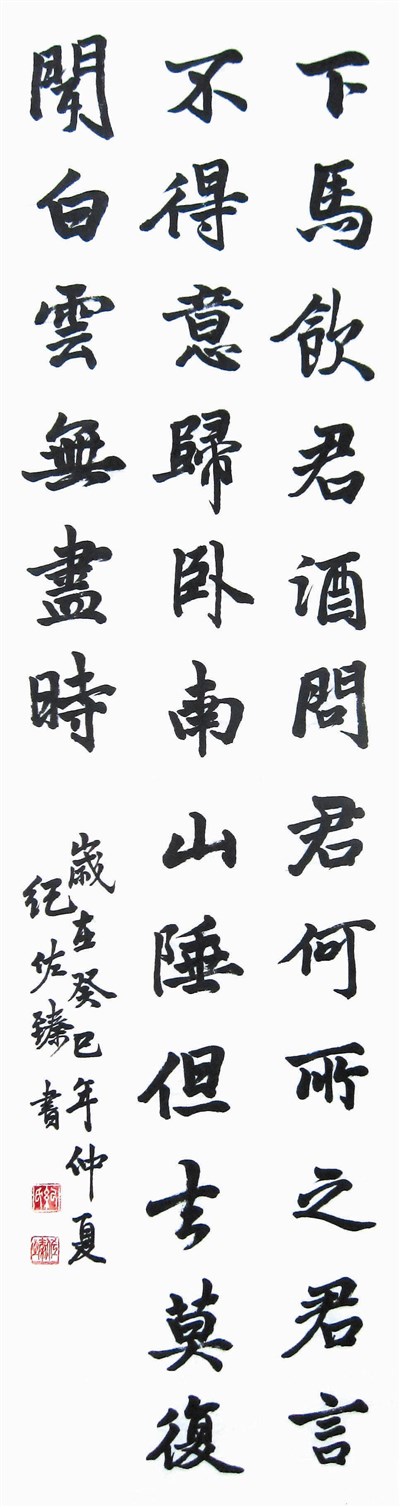 下馬飲君酒問君何所之君言
不得意歸卧南山陲但去莫復
聞白雲無盡時
歲在癸巳年仲夏
紀佐臻書